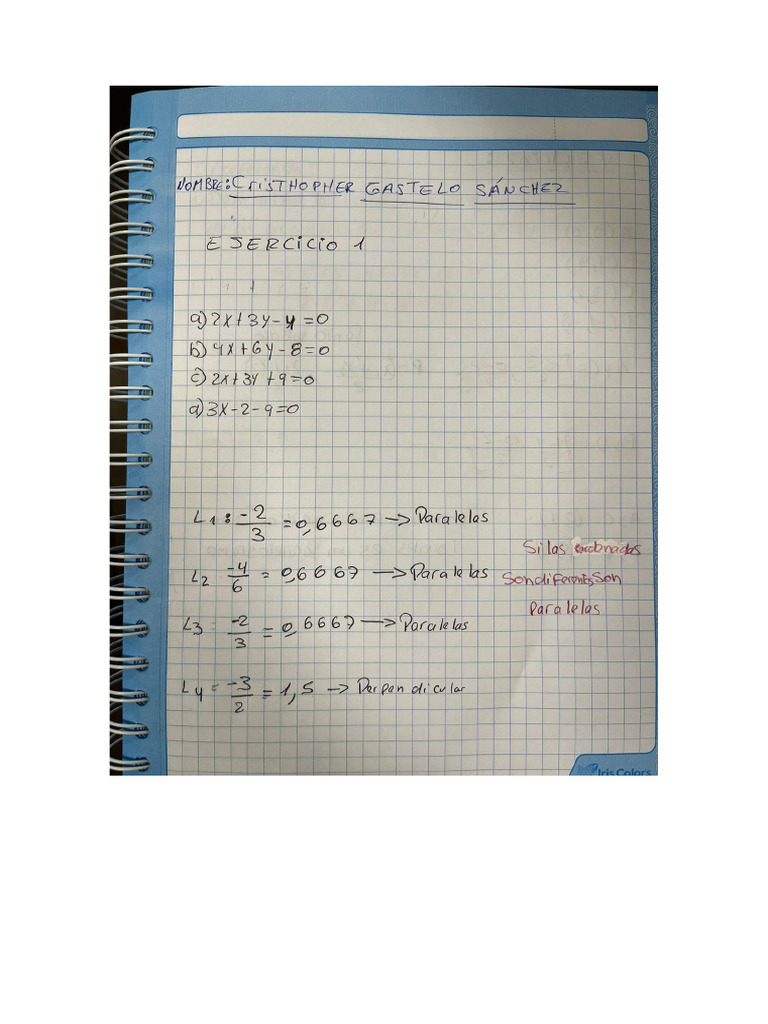 NOMBRE: CrisTHOPHER GASTELO SÁNCHEZ
EJERCiCiO 1
a) 2x+3y-4=0
b) 4x+6y-8=0
c) 2x+3y+9=0
d) 3x-2-9=0
L1: -2/3 = 0,6667 → Paralelas
L2 -4/6 = 0,6667 → Paralelas
L3 = -2/3 = 0,6667 → Paralelas
L4 = -3/2 = 1,5 → Perpendicular
Si las
Son diferentes, Son
Paralelas
Iris Colors